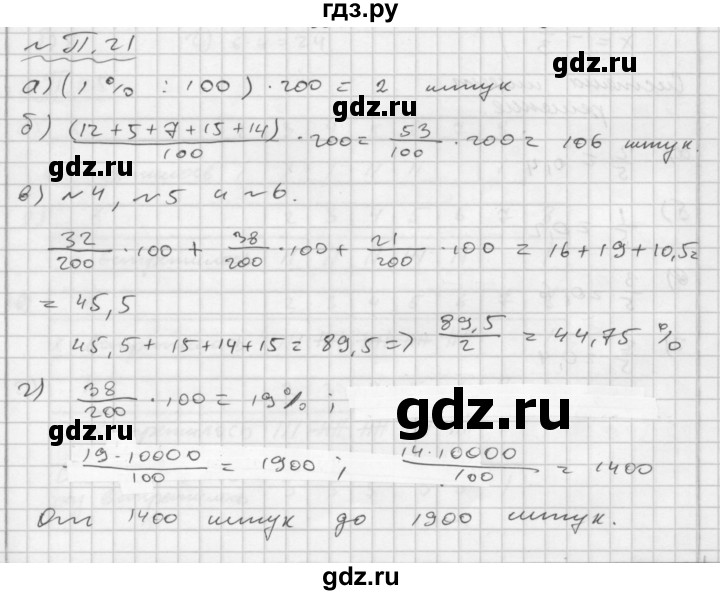 гдз.ру
~ П.21
а) (1% : 100) · 200 = 2 штук
gdz.ru
б) (12 + 5 + 7 + 15 + 14)/100 · 200 = 53/100 · 200 = 106 штук.
в) ~4, ~5 и ~6.
32/200 · 100 + 38/200 · 100 + 21/200 · 100 = 16 + 19 + 10,5 =
= 45,5
gdz.ru
45,5 + 15 + 14 + 15 = 89,5 => 89,5/2 = 44,75 %
г) 38/200 · 100 = 19% ;
gdz.ru
gdz.ru
· 19·10000/100 = 1900 ; 14·10000/100 = 1400
От 1400 штук до 1900 штук.
gdz.ru